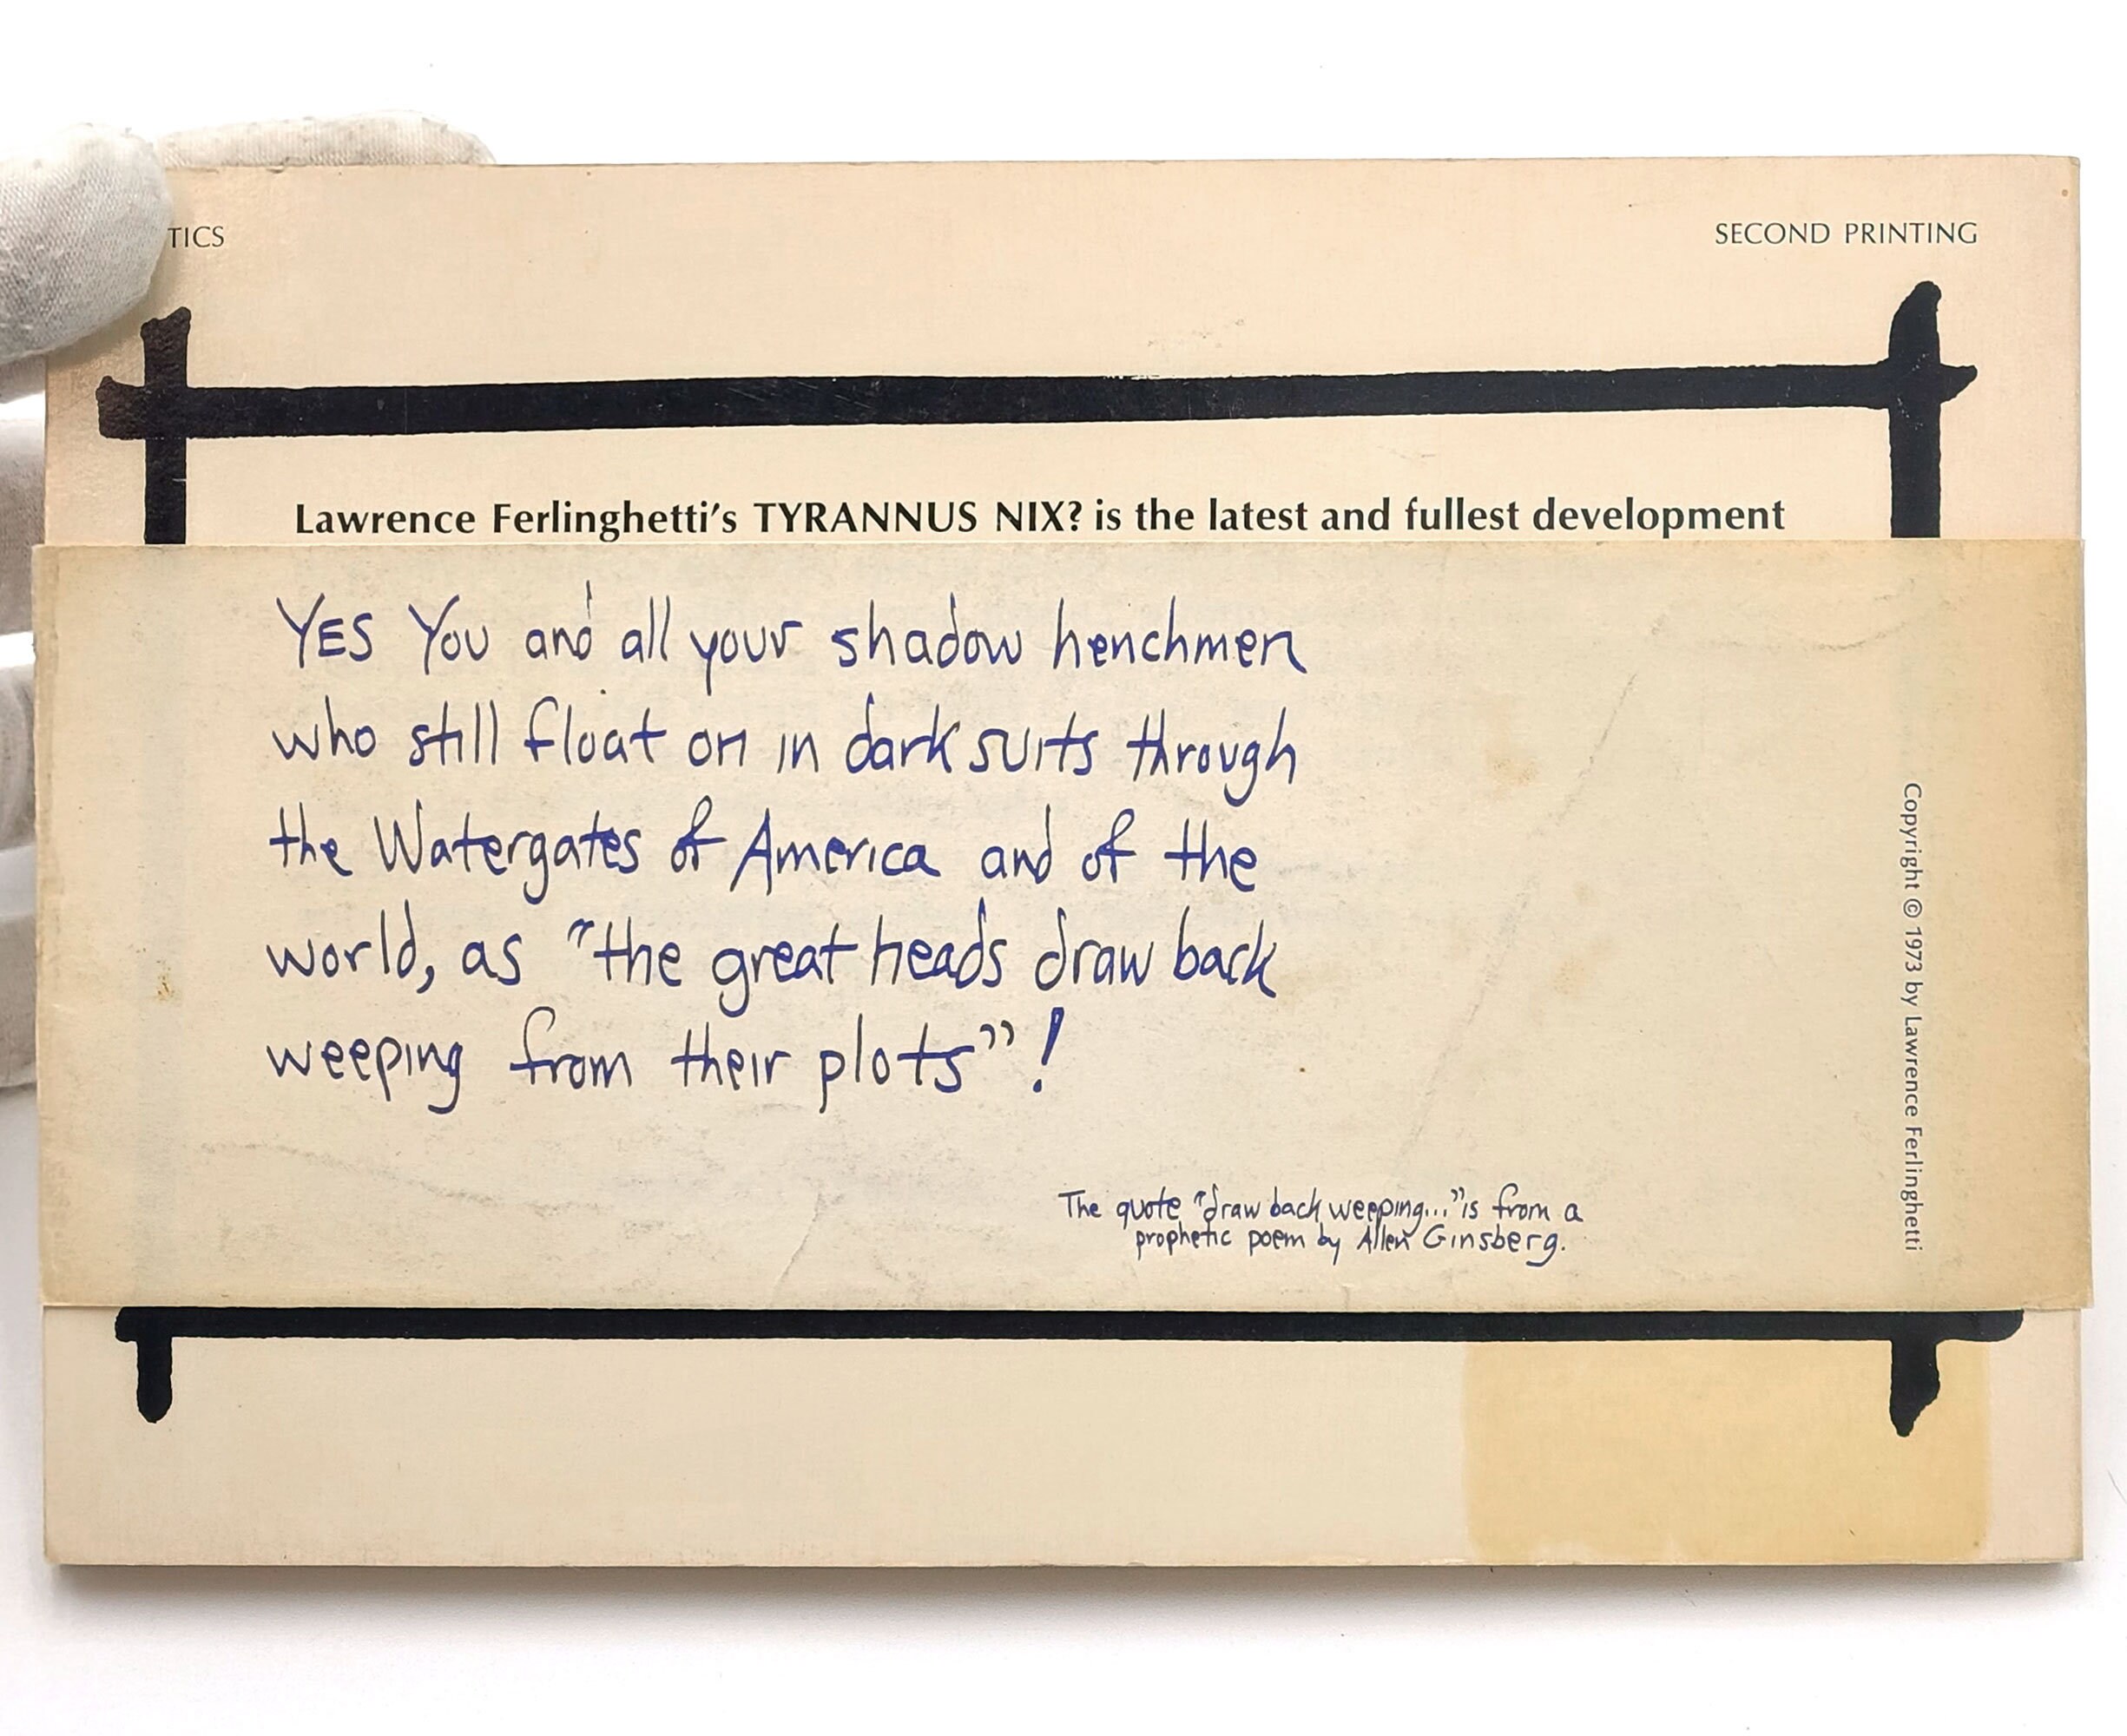 TICS
SECOND PRINTING
Lawrence Ferlinghetti's TYRANNUS NIX? is the latest and fullest development
YES You and all your shadow henchmen
who still float on in dark suits through
the Watergates of America and of the
world, as "the great heads draw back
weeping from their plots"!
The quote "draw back weeping..." is from a
prophetic poem by Allen Ginsberg.
Copyright © 1973 by Lawrence Ferlinghetti